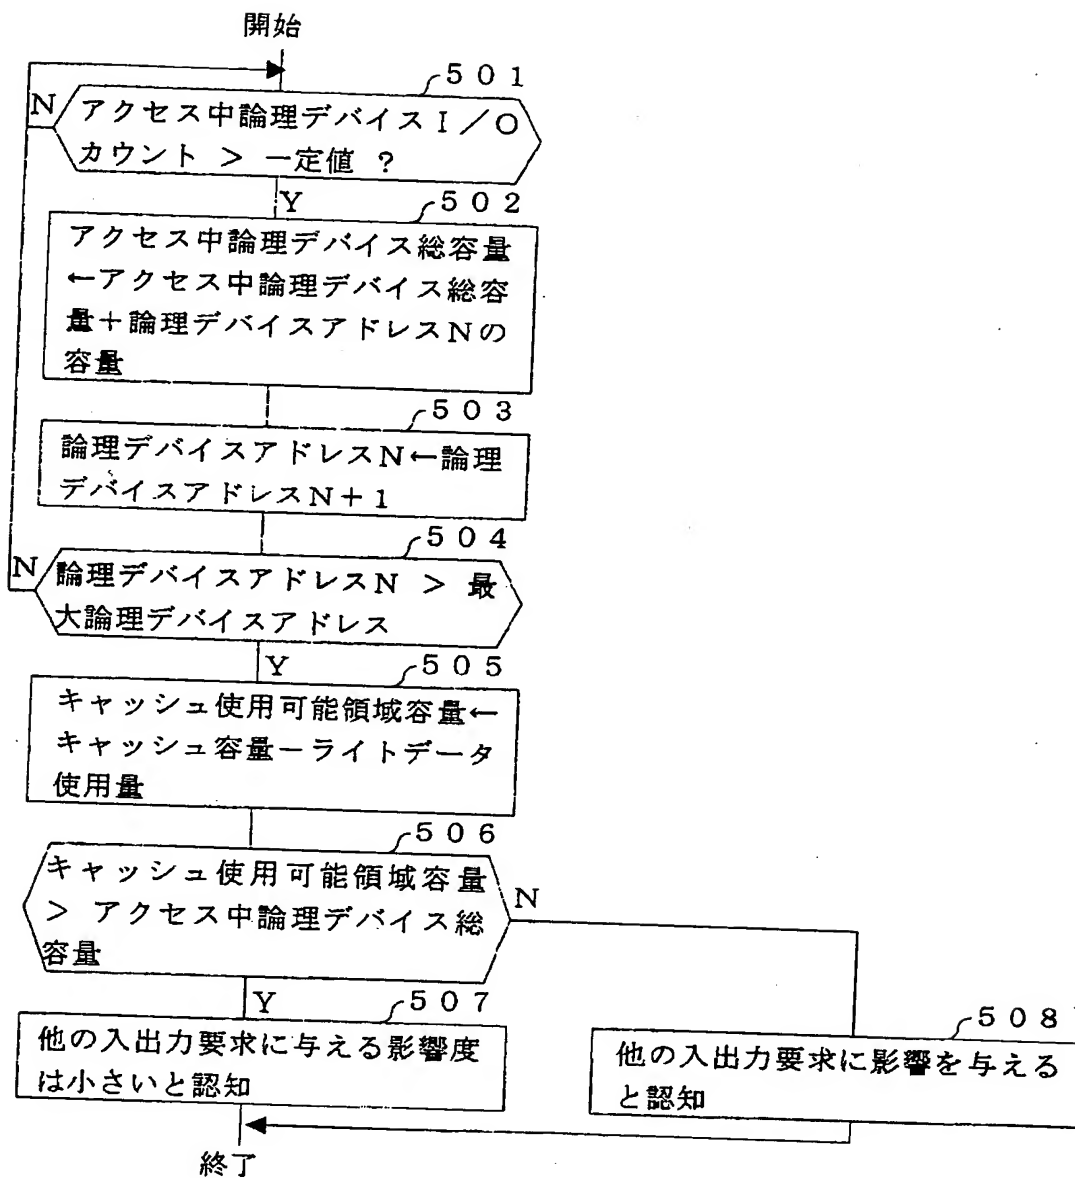 開始
501
N
アクセス中論理デバイスI/O
カウント > 一定値 ?
Y
502
アクセス中論理デバイス総容量
←アクセス中論理デバイス総容
量+論理デバイスアドレスNの
容量
503
論理デバイスアドレスN←論理
デバイスアドレスN+1
504
N
論理デバイスアドレスN > 最
大論理デバイスアドレス
Y
505
キャッシュ使用可能領域容量←
キャッシュ容量-ライトデータ
使用量
506
キャッシュ使用可能領域容量
> アクセス中論理デバイス総
容量
N
Y
507
他の入出力要求に与える影響度
は小さいと認知
508
他の入出力要求に影響を与える
と認知
終了